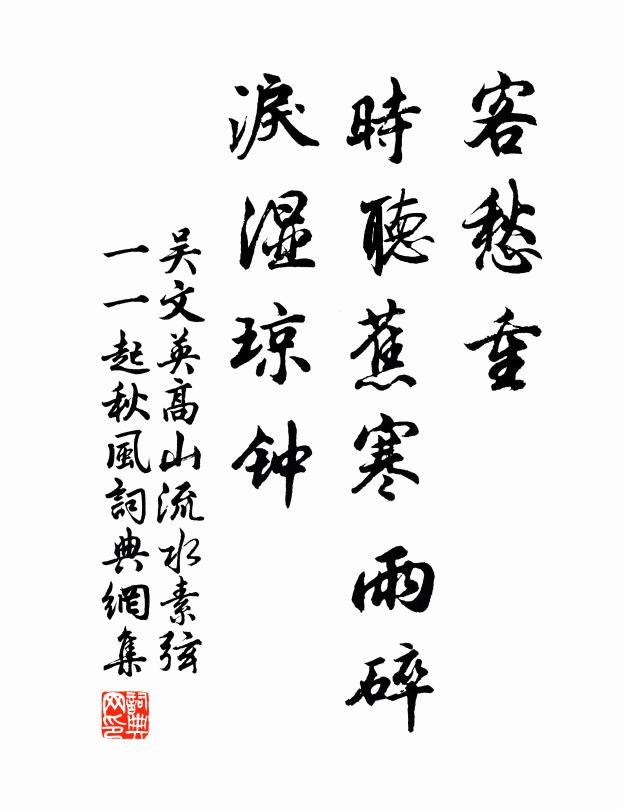 客愁重
時聽蕉寒雨碎
淚湿琼钟
吴文英高山流水素弦
一一起秋風詞典網集
詞典網印